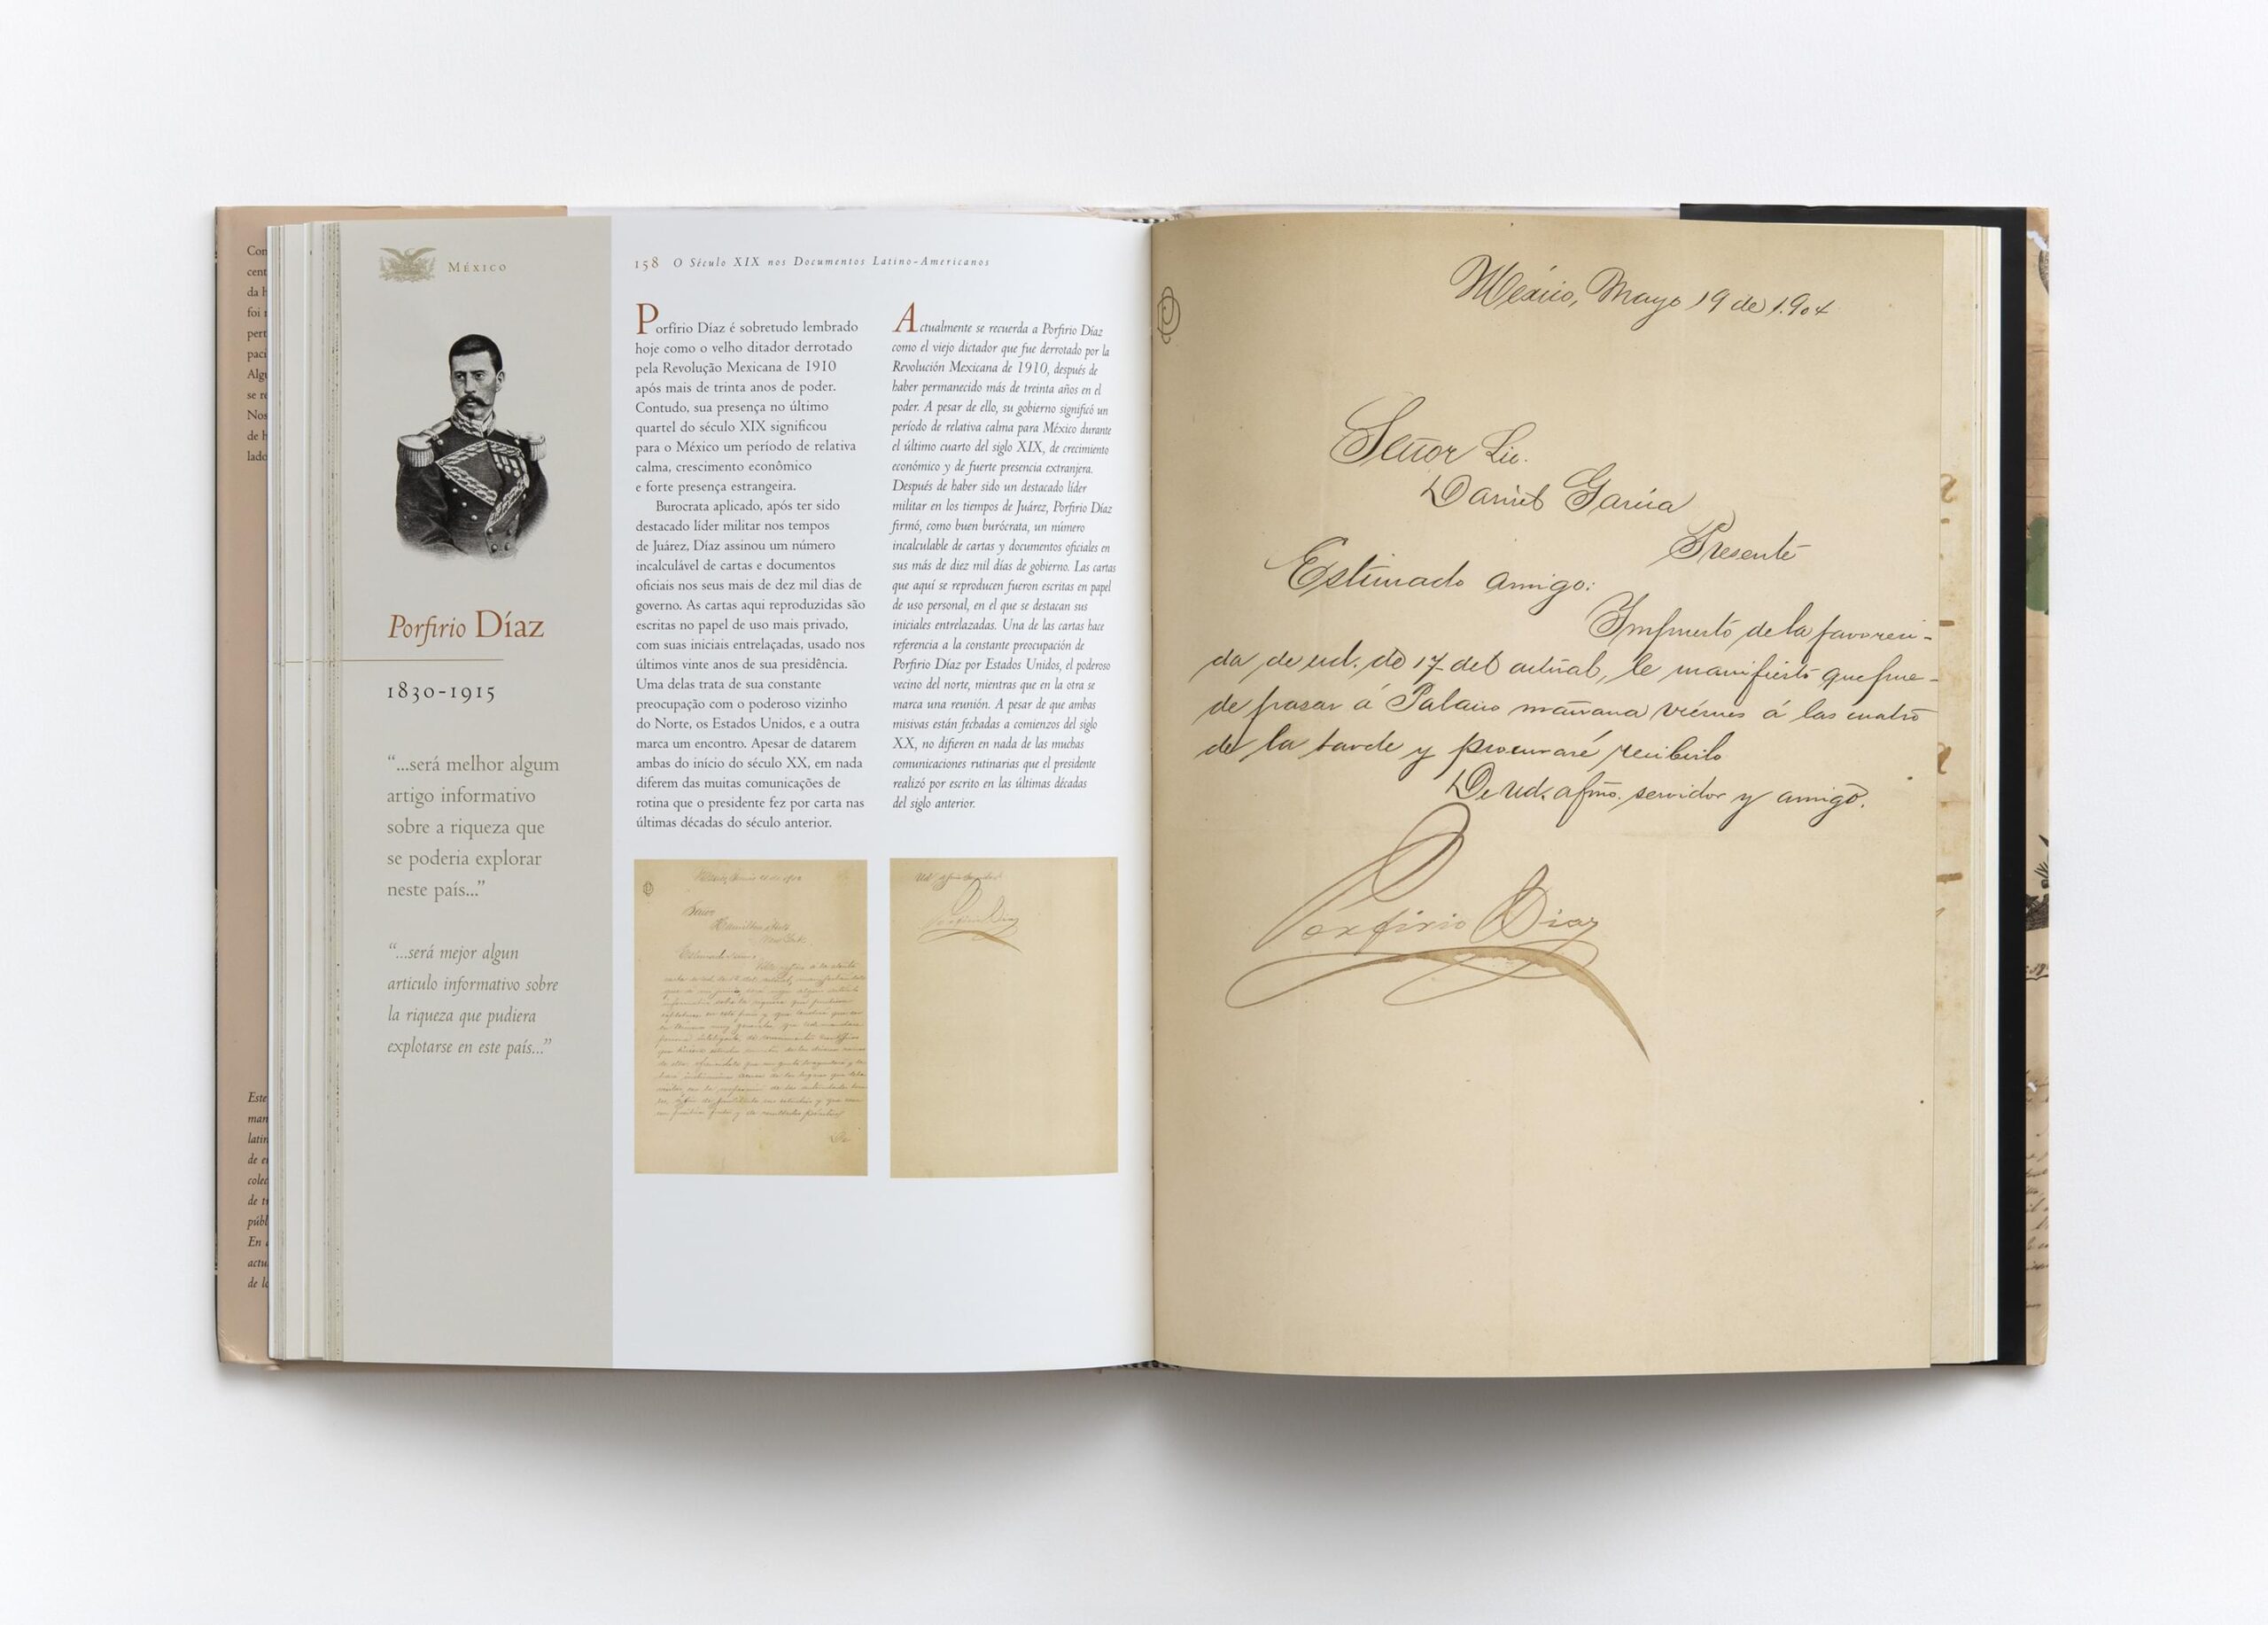 Con
cent
da h
foi r
pert
paci
Algu
se re
Nos
de h
lado
Este
man
latin
de e
colec
de tr
públ
En
actu
de lo
México
Porfirio Díaz
1830-1915
“...será melhor algum
artigo informativo
sobre a riqueza que
se poderia explorar
neste país...”
“...será mejor algun
articulo informativo sobre
la riqueza que pudiera
explotarse en este país...”
158 O Século XIX nos Documentos Latino-Americanos
Porfírio Díaz é sobretudo lembrado
hoje como o velho ditador derrotado
pela Revolução Mexicana de 1910
após mais de trinta anos de poder.
Contudo, sua presença no último
quartel do século XIX significou
para o México um período de relativa
calma, crescimento econômico
e forte presença estrangeira.
Burocrata aplicado, após ter sido
destacado líder militar nos tempos
de Juárez, Díaz assinou um número
incalculável de cartas e documentos
oficiais nos seus mais de dez mil dias de
governo. As cartas aqui reproduzidas são
escritas no papel de uso mais privado,
com suas iniciais entrelaçadas, usado nos
últimos vinte anos de sua presidência.
Uma delas trata de sua constante
preocupação com o poderoso vizinho
do Norte, os Estados Unidos, e a outra
marca um encontro. Apesar de datarem
ambas do início do século XX, em nada
diferem das muitas comunicações de
rotina que o presidente fez por carta nas
últimas décadas do século anterior.
Actualmente se recuerda a Porfirio Díaz
como el viejo dictador que fue derrotado por la
Revolución Mexicana de 1910, después de
haber permanecido más de treinta años en el
poder. A pesar de ello, su gobierno significó un
período de relativa calma para México durante
el último cuarto del siglo XIX, de crecimiento
económico y de fuerte presencia extranjera.
Después de haber sido un destacado líder
militar en los tiempos de Juárez, Porfirio Díaz
firmó, como buen burócrata, un número
incalculable de cartas y documentos oficiales en
sus más de diez mil días de gobierno. Las cartas
que aquí se reproducen fueron escritas en papel
de uso personal, en el que se destacan sus
iniciales entrelazadas. Una de las cartas hace
referencia a la constante preocupación de
Porfirio Díaz por Estados Unidos, el poderoso
vecino del norte, mientras que en la otra se
marca una reunión. A pesar de que ambas
misivas están fechadas a comienzos del siglo
XX, no difieren en nada de las muchas
comunicaciones rutinarias que el presidente
realizó por escrito en las últimas décadas
del siglo anterior.
Señor
Hamilton Holt
New York.
Ud. afmo. servidor
Porfirio Diaz
México, Mayo 19 de 1.904
Señor Lic.
Daniel García
Presente
Estimado amigo:
Impuesto de la favoreci-
da de ud. de 17 del actual, le manifiesto que pue-
de pasar á Palacio mañana viérnes á las cuatro
de la tarde y procuraré recibirlo
De Ud. afmo. servidor y amigo.
Porfirio Diaz